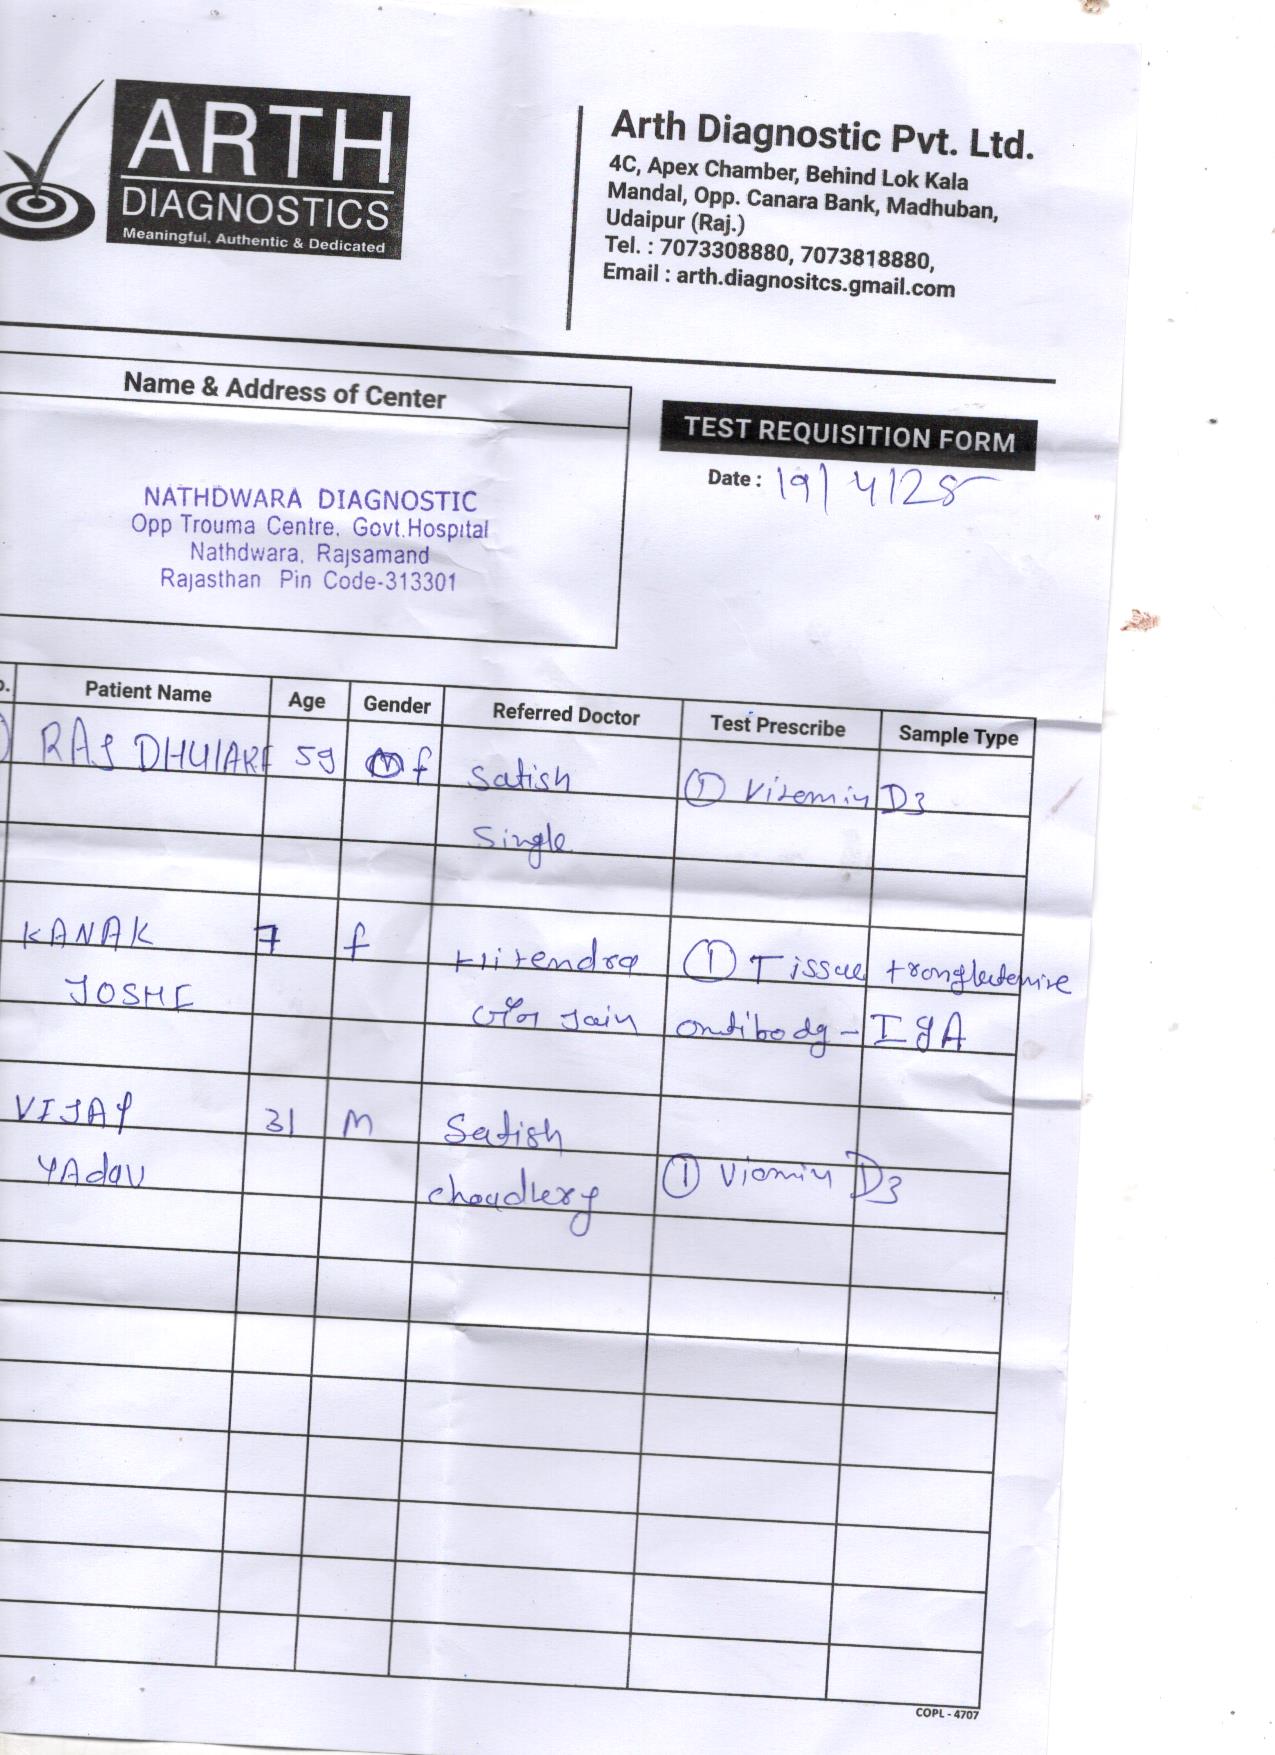 ARTH
DIAGNOSTICS
Meaningful, Authentic & Dedicated
Arth Diagnostic Pvt. Ltd.
4C, Apex Chamber, Behind Lok Kala
Mandal, Opp. Canara Bank, Madhuban,
Udaipur (Raj.)
Tel. : 7073308880, 7073818880,
Email : arth.diagnositcs.gmail.com
Name & Address of Center
TEST REQUISITION FORM
Date : 19/4/25
NATHDWARA DIAGNOSTIC
Opp Trouma Centre, Govt.Hospital
Nathdwara, Rajsamand
Rajasthan Pin Code-313301
Patient Name Age Gender Referred Doctor Test Prescribe Sample Type
RAJ 59 f Satish ① Vitemin D3
Single
KANAK 7 f Hitendra ① Tissue
JOSHI Jain antibody - IgA
VIJAY 31 M Satish
YAdav ① Viomin D3
COPL - 4707